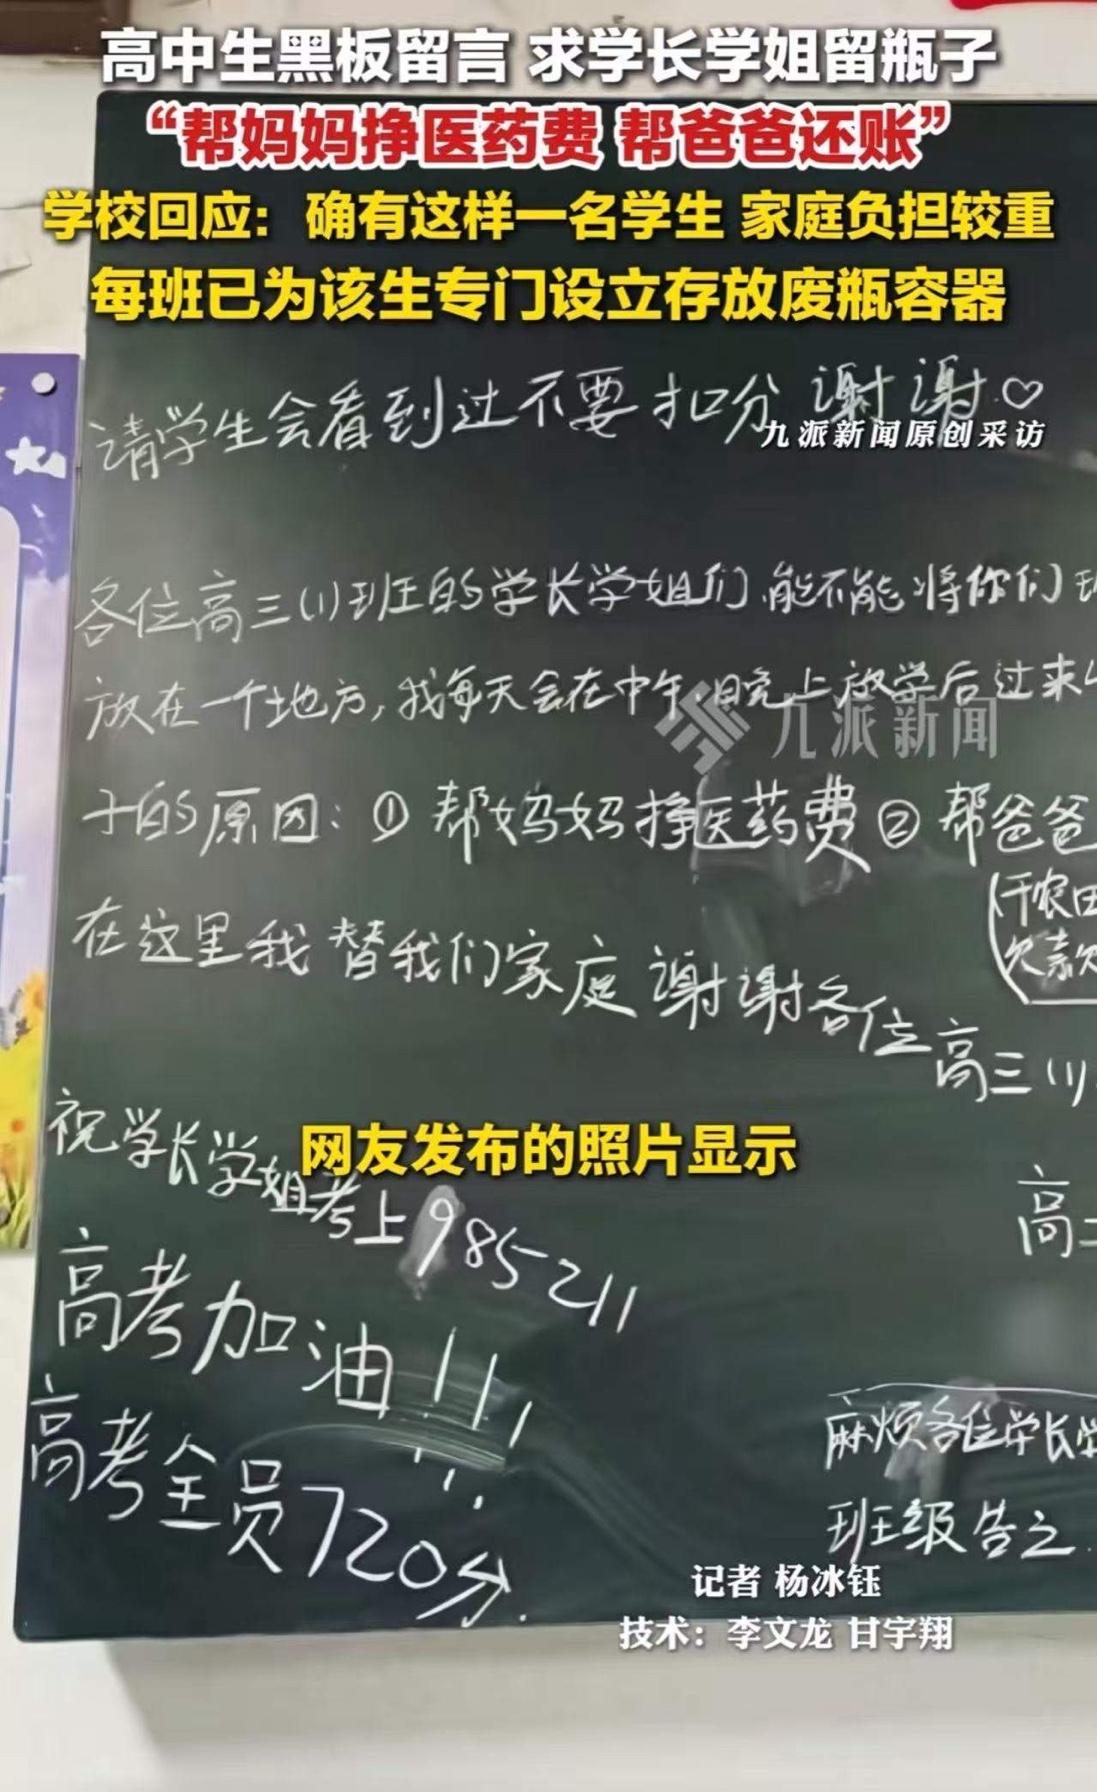 高中生黑板留言 求学长学姐留瓶子
“帮妈妈挣医药费 帮爸爸还账”
学校回应：确有这样一名学生 家庭负担较重
每班已为该生专门设立存放废瓶容器
请学生会看到过不要扣分 谢谢♡
九派新闻原创采访
各位高三(1)班的学长学姐们,能不能将你们
放在一个地方,我每天会在中午 晚上放学后过来
九派新闻
子的原因:① 帮妈妈挣医药费② 帮爸爸
(干农田
欠款
在这里我替我们家庭谢谢各位高三(1)
祝学长学姐考上985 211
网友发布的照片显示
高二
高考加油!!!
高考全员720分.
麻烦各位学长学
班级告之
记者 杨冰钰
技术：李文龙 甘宇翔